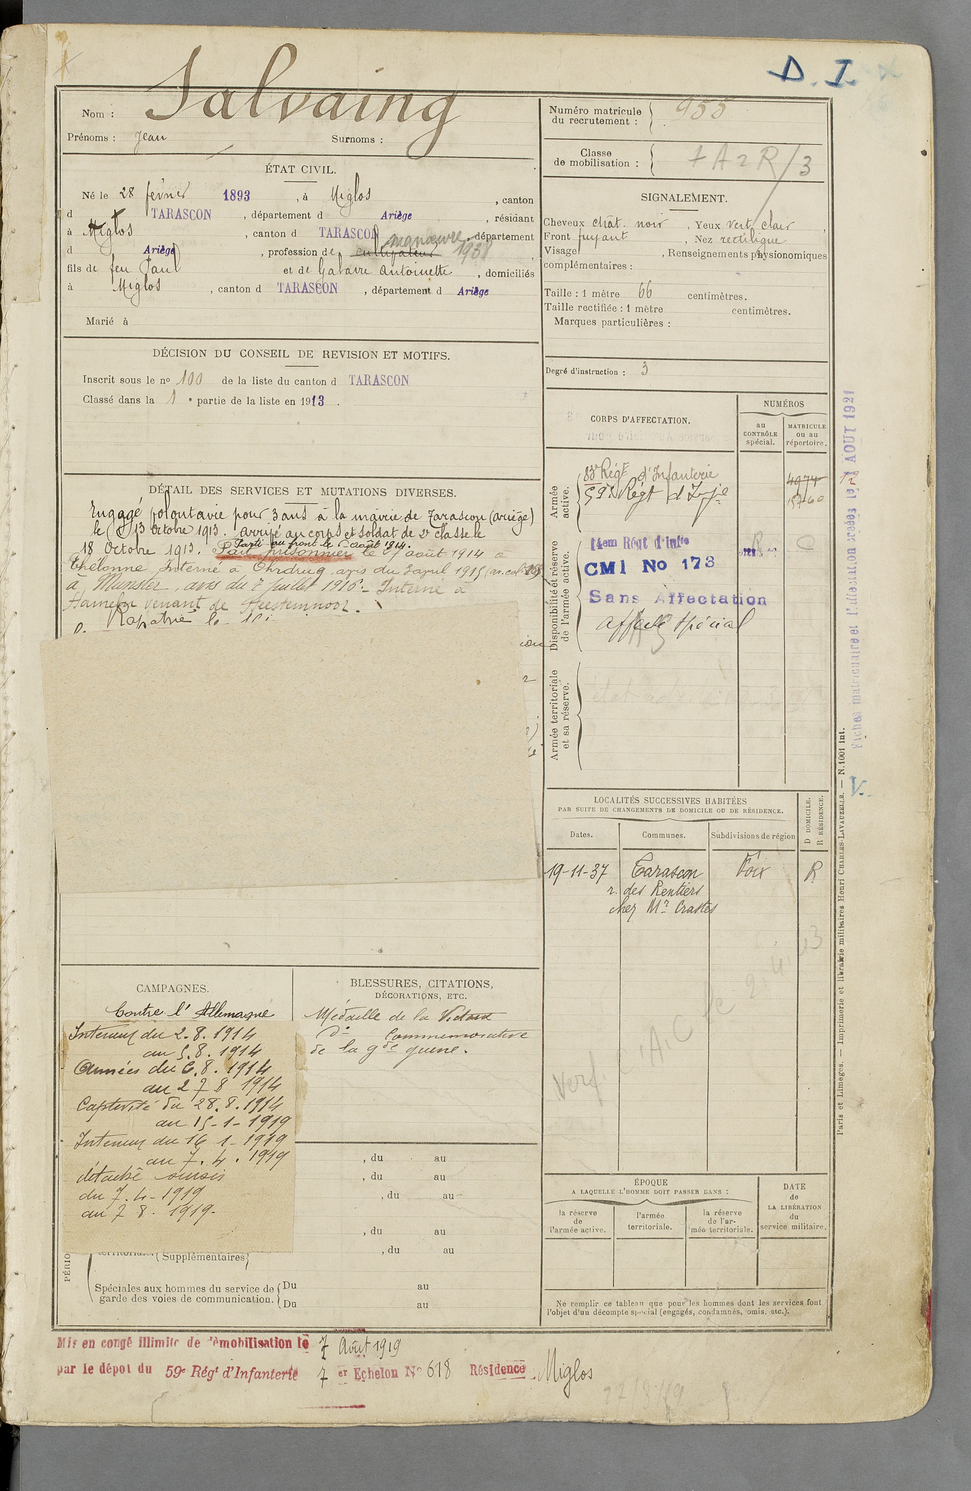 D. I.
Nom : Salvaing
Prénoms : Jean Surnoms :
Numéro matricule du recrutement : 955
Classe de mobilisation :
ÉTAT CIVIL.
Né le 28 février 1893, à Miglos, canton
d TARASCON, département d Ariège, résidant
à Miglos, canton d TARASCON, département
d Ariège, profession de cultivateur manœuvre 1938
fils de feu Paul et de Gabarre Antoinette, domiciliés
à Miglos, canton d TARASCON, département d Ariège
Marié à
SIGNALEMENT.
Cheveux chât. noir, Yeux vert clair,
Front fuyant, Nez rectiligne
Visage, Renseignements physionomiques
complémentaires :
Taille : 1 mètre 66 centimètres.
Taille rectifiée : 1 mètre centimètres.
Marques particulières :
Degré d'instruction : 3
DÉCISION DU CONSEIL DE REVISION ET MOTIFS.
Inscrit sous le n° 100 de la liste du canton d TARASCON
Classé dans la 1e partie de la liste en 1913.
DÉTAIL DES SERVICES ET MUTATIONS DIVERSES.
Engagé volontaire pour 3 ans à la mairie de Tarascon (Ariège)
le 13 Octobre 1913. arrivé au corps et soldat de 2e classe le
18 Octobre 1913. Parti au front le août 1914.
Fait prisonnier le août 1914 à
Thelonne, Interné à Ohrdruf avis du 3 avril 1915
à Munster, avis du 7 juillet 1916. Interné à
Hameln venant de
Rapatrié le
CORPS D'AFFECTATION.
NUMÉROS
au CONTRÔLE spécial.
MATRICULE ou au répertoire.
Armée active.
83e Régt d'Infanterie 4974
59e Régt d'Infie
Disponibilité et réserve de l'armée active.
14em Régt d'Infie
CMI No 173
Sans Affectation
Affecté spécial
Armée territoriale et sa réserve.
Fiches matriculaire et d'affectation créées le AOUT 1921
V.
LOCALITÉS SUCCESSIVES HABITÉES
PAR SUITE DE CHANGEMENTS DE DOMICILE OU DE RÉSIDENCE.
D DOMICILE.
R RÉSIDENCE.
Dates. Communes. Subdivisions de région
19-11-37 Tarascon Foix R
r. des Rentiers
chez Mr Crastes
CAMPAGNES.
Contre l'Allemagne
Intérieur du 2.8.1914
au 5.8.1914
Armées du 6.8.1914
au 27 8 1914
Captivité du 28.8.1914
au 15-1-1919
Intérieur du 16 1-1919
au 7.4.1919
détaché
du 7.4-1919
au 7 8.1919.
BLESSURES, CITATIONS,
DÉCORATIONS, ETC.
Médaille de la Victoire
d° Commémorative
de la gde guerre.
, du au
, du au
, du au
, du au
Supplémentaires , du au
Spéciales aux hommes du service de garde des voies de communication. Du au
Du au
ÉPOQUE
A LAQUELLE L'HOMME DOIT PASSER DANS :
la réserve de l'armée active.
l'armée territoriale.
la réserve de l'armée territoriale.
DATE de LA LIBÉRATION du service militaire.
Ne remplir ce tableau que pour les hommes dont les services font
l'objet d'un décompte spécial (engagés, condamnés, omis, etc.).
Paris et Limoges. — Imprimerie et librairie militaires Henri CHARLES-LAVAUZELLE. — N. 1001 int.
Mis en congé illimité de démobilisation le 7 Août 1919
par le dépot du 59e Régt d'Infanterie 7 er Echelon No 618 Résidence Miglos